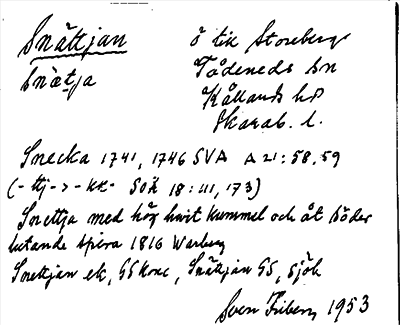 Snättjan ö tik Storeberg
Snätja Tådeneds sn
Kållands hd
Skarab. l.
Snecka 1741, 1746 SVA A 21:58.59
(-ttj- > -kk- SOÄ 18:111, 173)
Snettja med hög hwit kummel och åt Söder
lutande spira 1816 Warberg
Snettjan ek, GS konc, Snättjan GS, sjök
Sven Friberg 1953